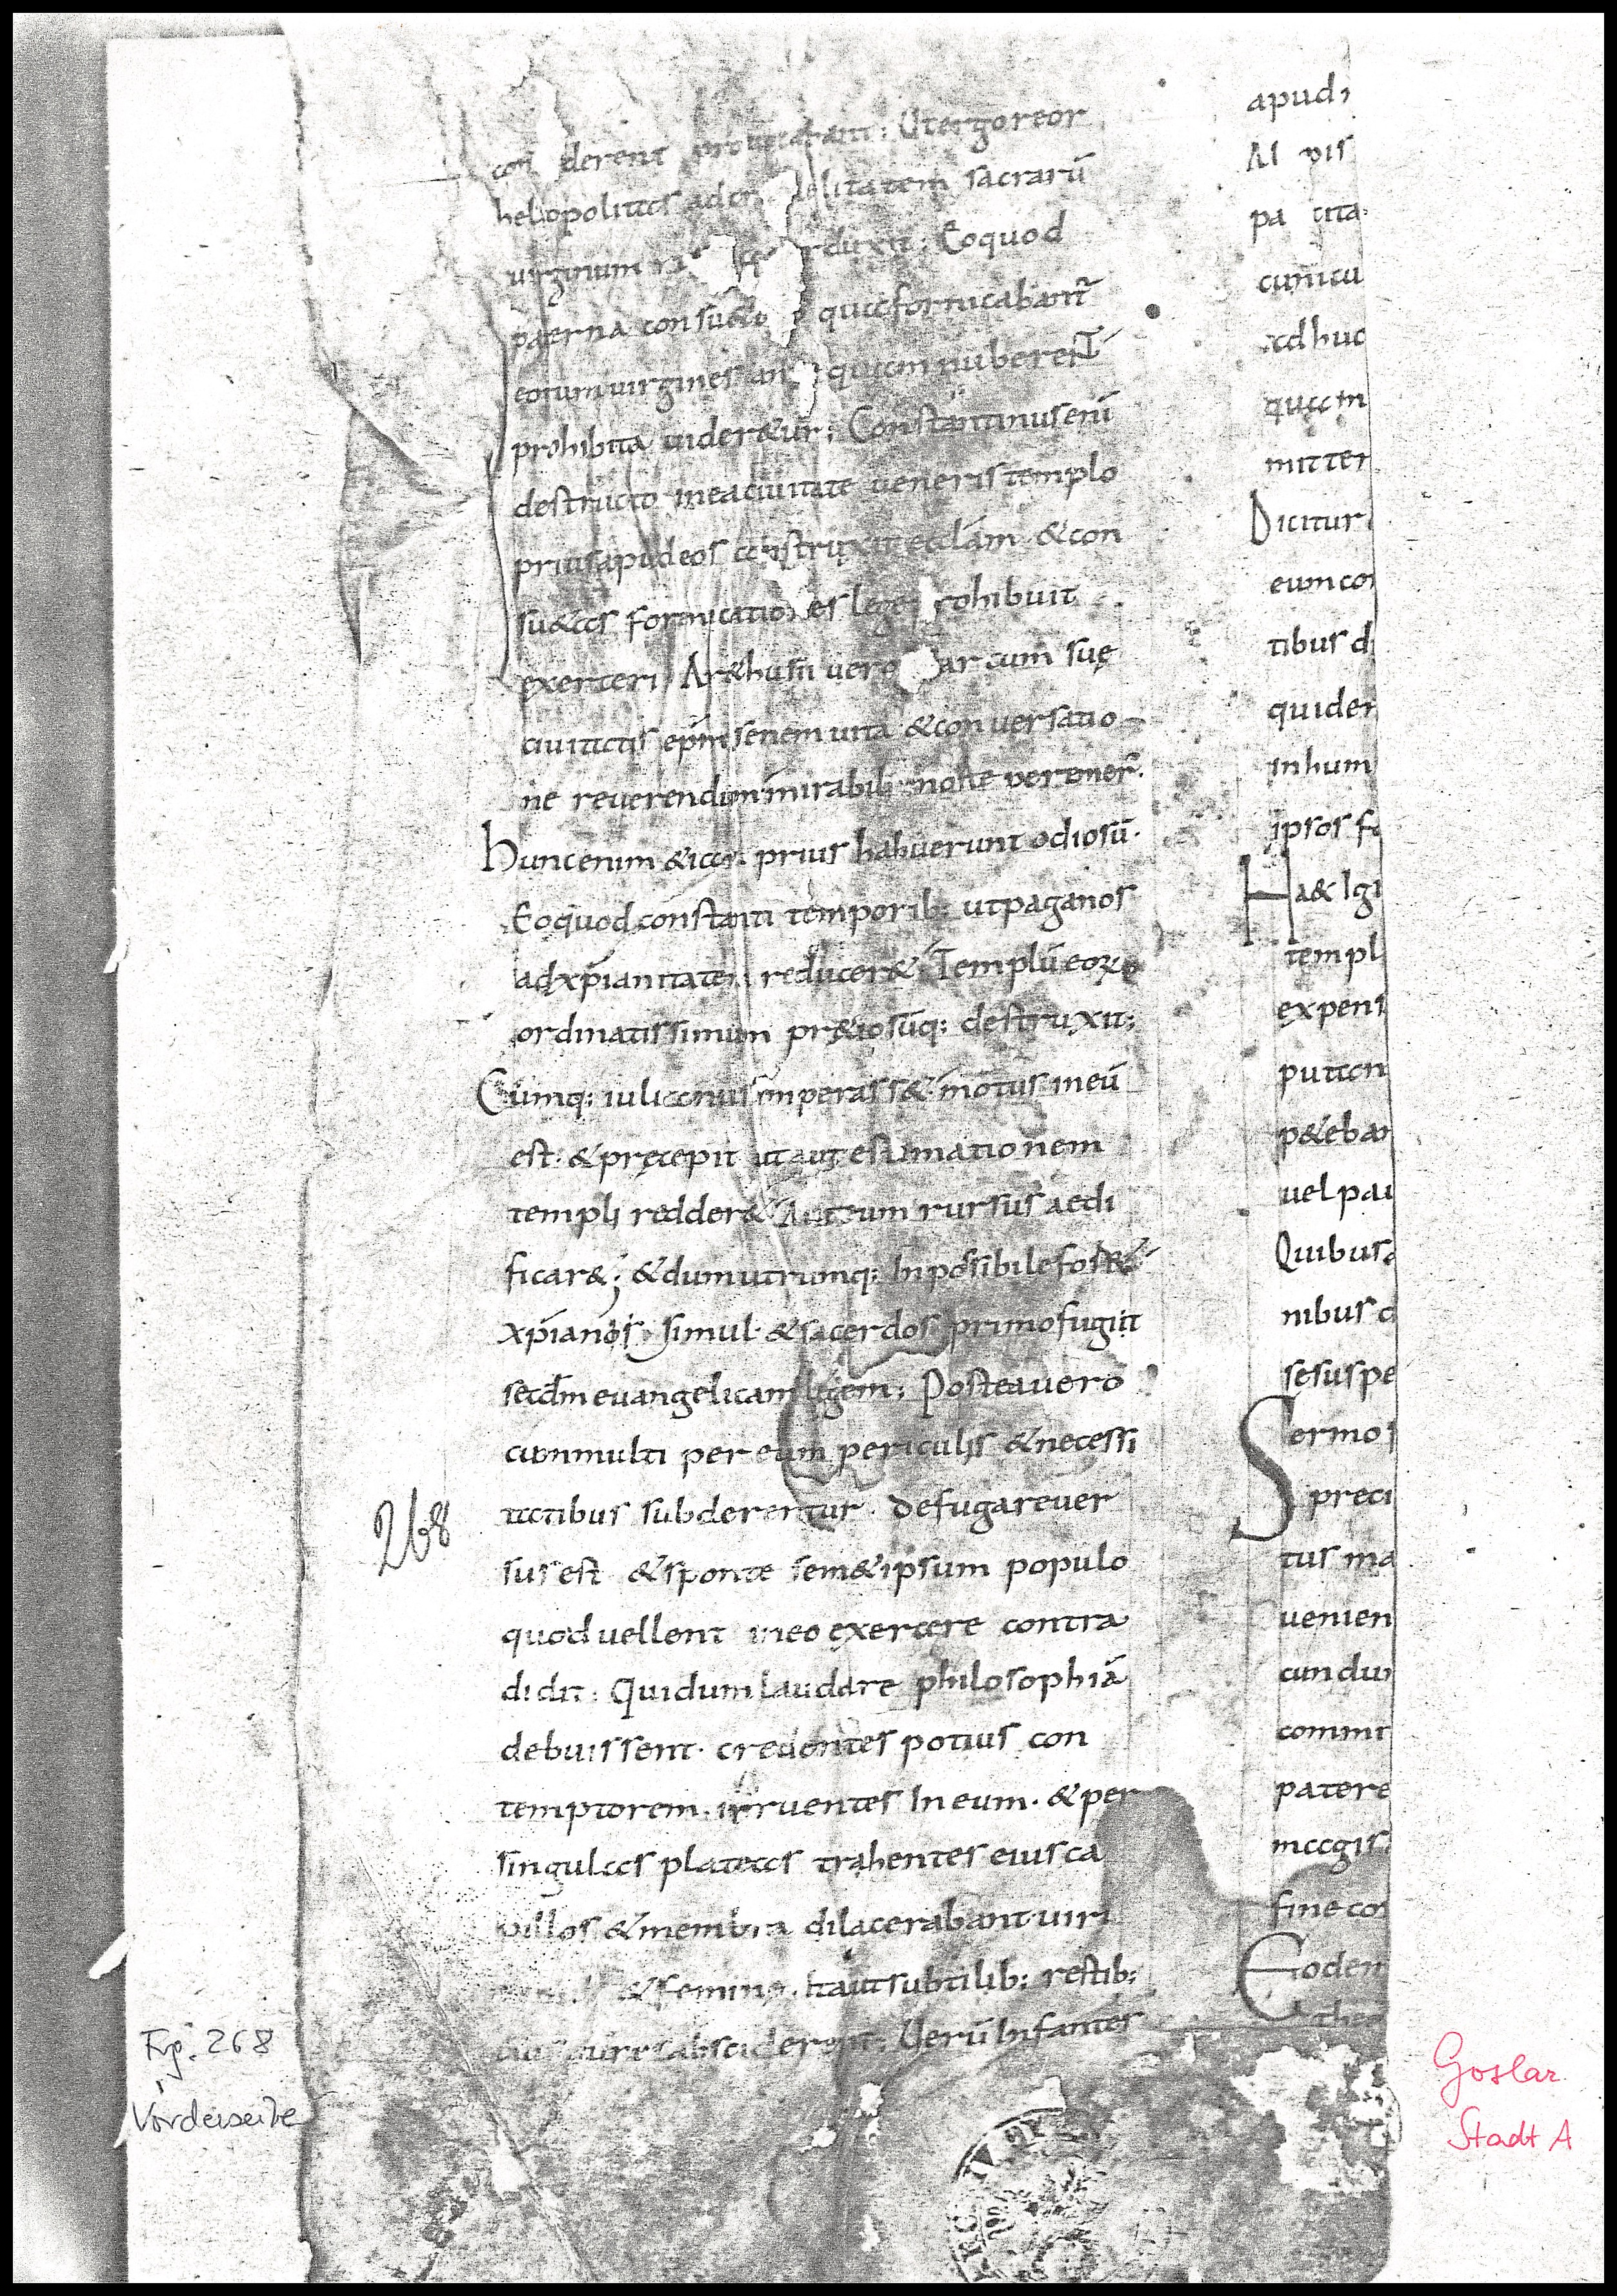 con derent provocarant: Utergoreor
heliopolitas adcr delitatem sacrarū
virginum duxit: Eoquod
paterna consu&u quaefornicabant̄
eorumuirgines an quam nuberent
prohibita uider&ur; Constantinusenī
destructo ineaciuitate ueneristemplo
priusapudeos construxit ecclām &con
su&as fornicationes lege rohibuit
exerceri Ar&husii uero ar cum suę
ciuitatis ep̄m senem uita &conversatio
ne reverendum mirabili none
huncenim &iam prius habuerunt odiosū.
Eoquod constanti temporib; utpaganos
adxp̄ianitatem reducer& Templū eoꝝ
ordinatissimum pr&iosūq; destruxit;
Cumq; iulianus imperass& motus ineū
est. &pręcepit ut aut estimationem
templi redder& Aut rursus aedi
ficar&; &dumutrumq; Inposibilefor&
xp̄ianos simul &sacerdos primofugiit
secdm evangelicam legem; Posteavero
cummulti per eum periculis &necessi
tatibus subderentur. defugarever
sus est &sponte sem&ipsum populo
quoduellent ineo exercere contra
didit: Quidum laudare philosophiā
debuissent. credentes potius con
temptorem. irruentes Ineum. &per
singulas plateas trahentes eiusca
pillos &membra dilacerabant uiri
&femine. Itautsubtilib; restib;
aures absciderent: Uerū Infantes
apud
Al vis
pa cita
cunicu
adhuc
quam
mitter
Dicitur
eumcon
tibus d
quider
Inhum
ipsos fa
Ha& Igi
templ
expens
putan
p&ebar
uel pau
Quibus
nibus c
sesuspe
Sermo
preci
tus ma
uenien
cundui
commi
patere
magis
fine con
Eodem
the
268
Frg. 268
Vorderseite
Goslar
Stadt A